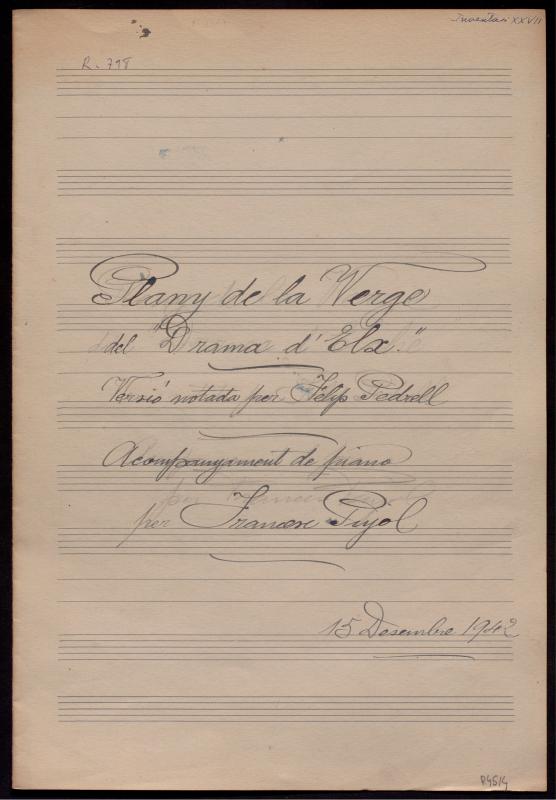 Inventari XXVII
R. 798
Plany de la Verge
del "Drama d'Elx."
Versió notada per Felip Pedrell
Acompanyament de piano
per Francesc Pujol
15 Desembre 1942